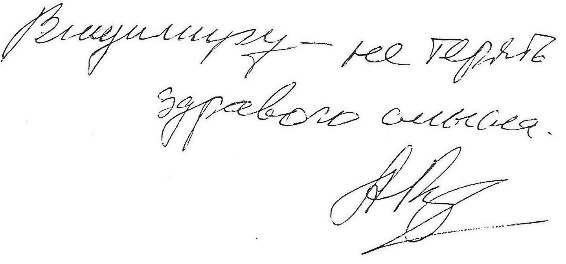 Владимиру – не терять
здравого смысла.